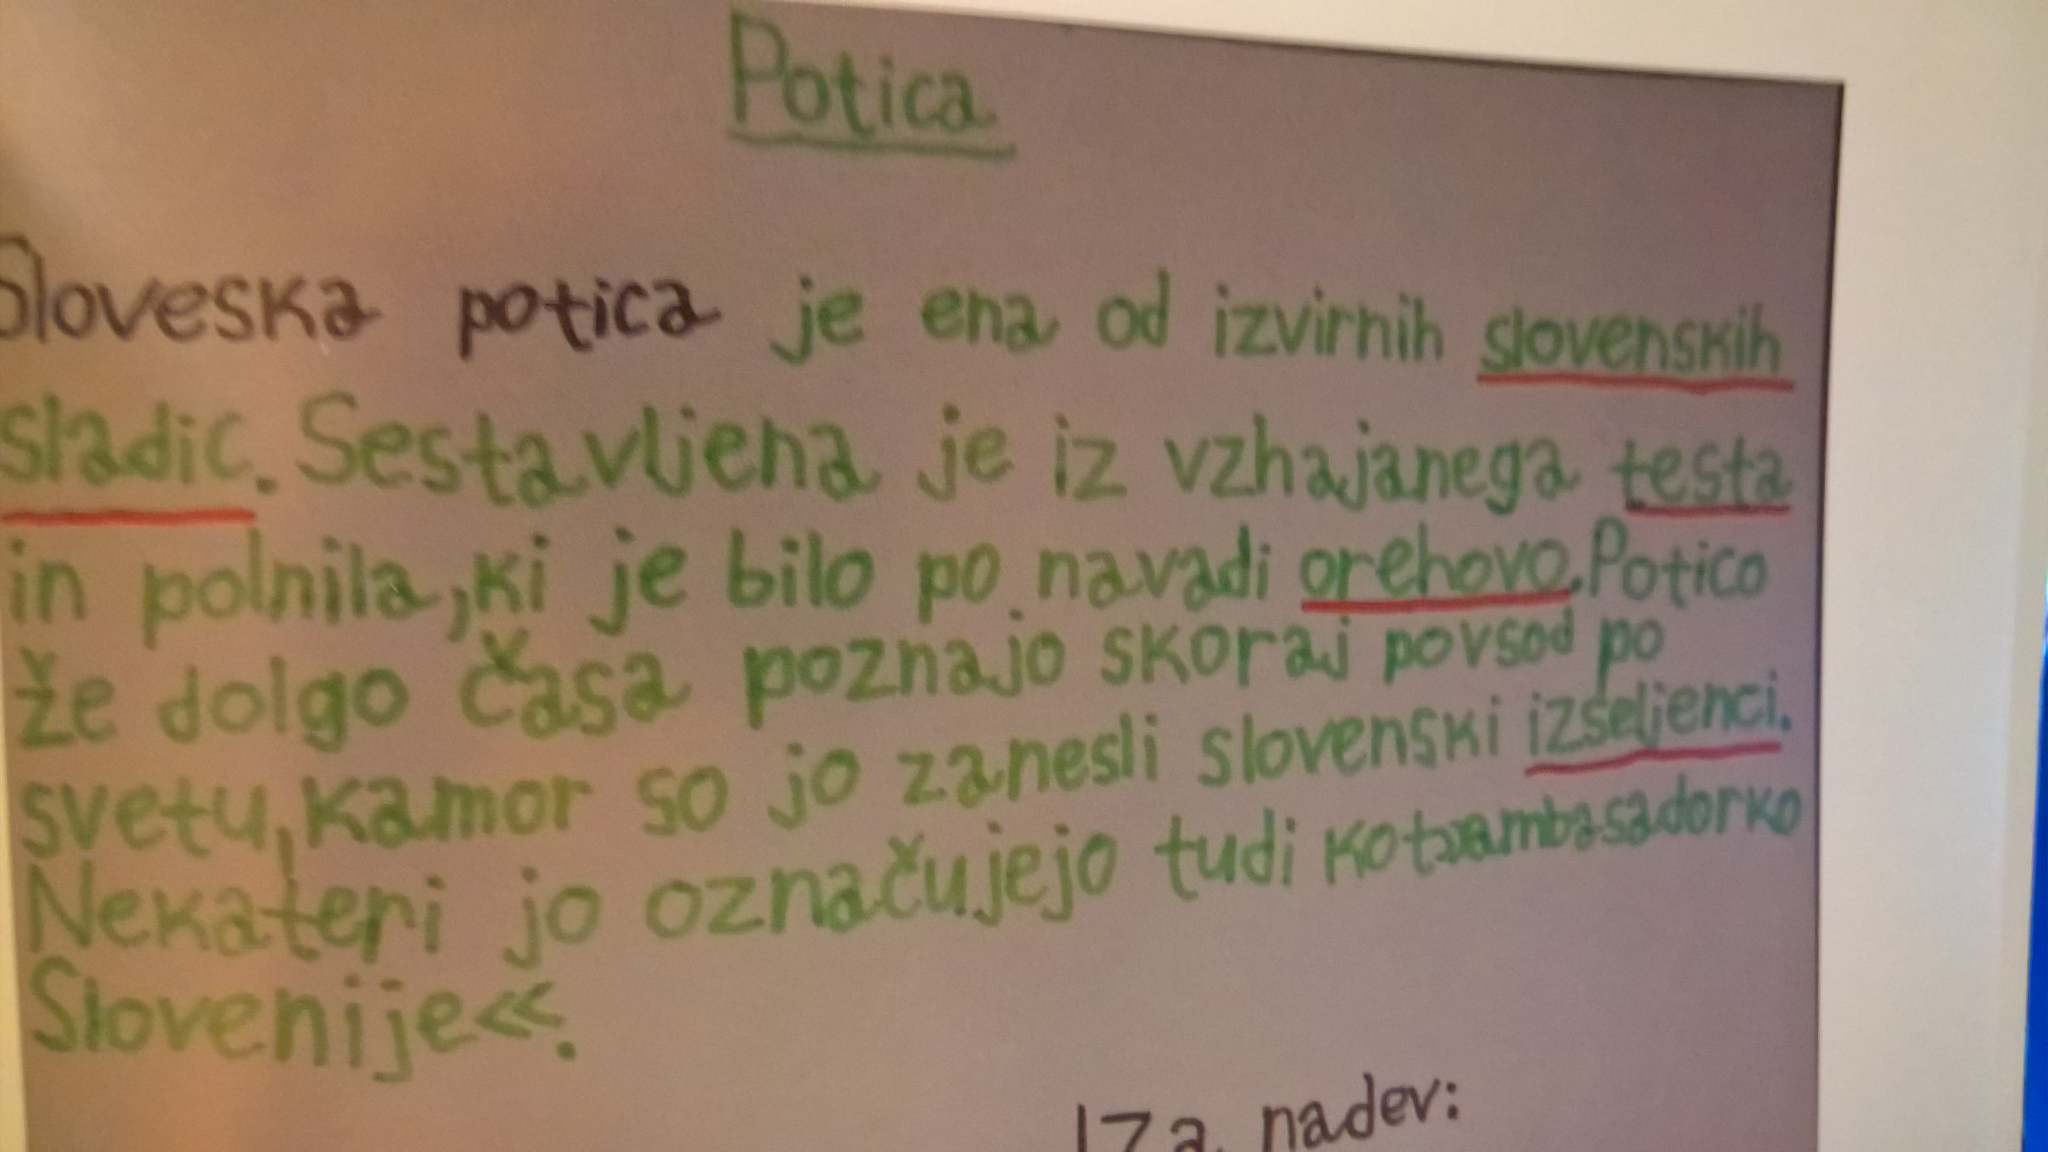 Potica
Sloveska potica je ena od izvirnih slovenskih
sladic. Sestavljena je iz vzhajanega testa
in polnila, ki je bilo po navadi orehovo. Potico
že dolgo časa poznajo skoraj povsod po
svetu, kamor so jo zanesli slovenski izseljenci.
Nekateri jo označujejo tudi kot »ambasadorko
Slovenije«.
Za nadev: